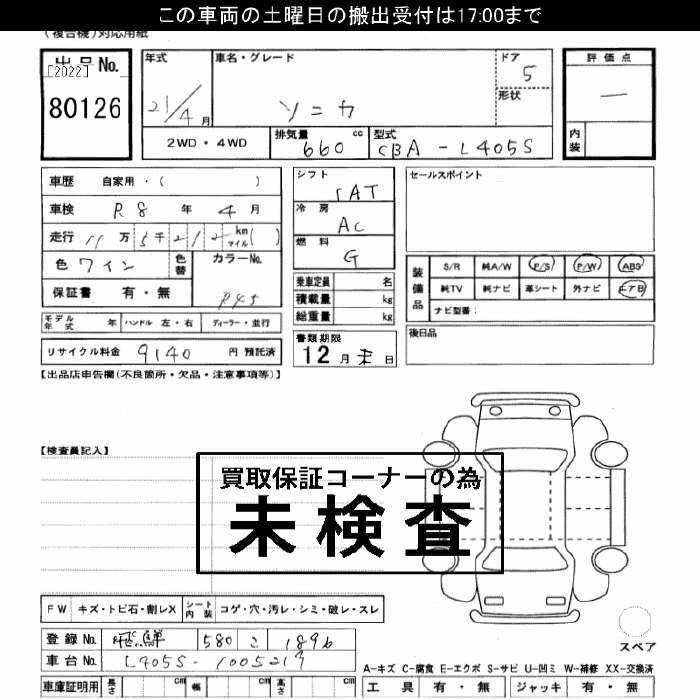 この車両の土曜日の搬出受付は17:00まで
(複合機)対応用紙
出品No. [2022] 80126
年式 21/4月
車名・グレード ソニカ
ドア 5
形状
評価点 ー
内装
2WD・4WD
排気量 660 cc
型式 CBA-L405S
車歴 自家用・( )
車検 R8年 4月
走行 11万 5千 212 km マイル( )
色 ワイン 色替
カラーNo. R45
保証書 有・無
シフト IAT
冷房 AC
燃料 G
乗車定員 名
積載量 kg
総重量 kg
セールスポイント
装備品 S/R 純A/W P/S P/W ABS
純TV 純ナビ 革シート 外ナビ エアB
ナビ型番:
モデル年式 年 ハンドル 左・右 ディーラー・並行
リサイクル料金 9140 円 預託済
書類期限 12月末日
後日品
【出品店申告欄(不良箇所・欠品・注意事項等)】
【検査員記入】
買取保証コーナーの為
未検査
FW キズ・トビ石・割レX シート内装 コゲ・穴・汚レ・シミ・破レ・スレ
登録No. 飛鮮 580 こ 1896
車台No. L405S-1005217
スペア
A-キズ C-腐食 E-エクボ S-サビ U-凹ミ W-補修 XX-交換済
車庫証明用 長さ cm 幅 cm 高さ cm
工具 有・無 ジャッキ 有・無